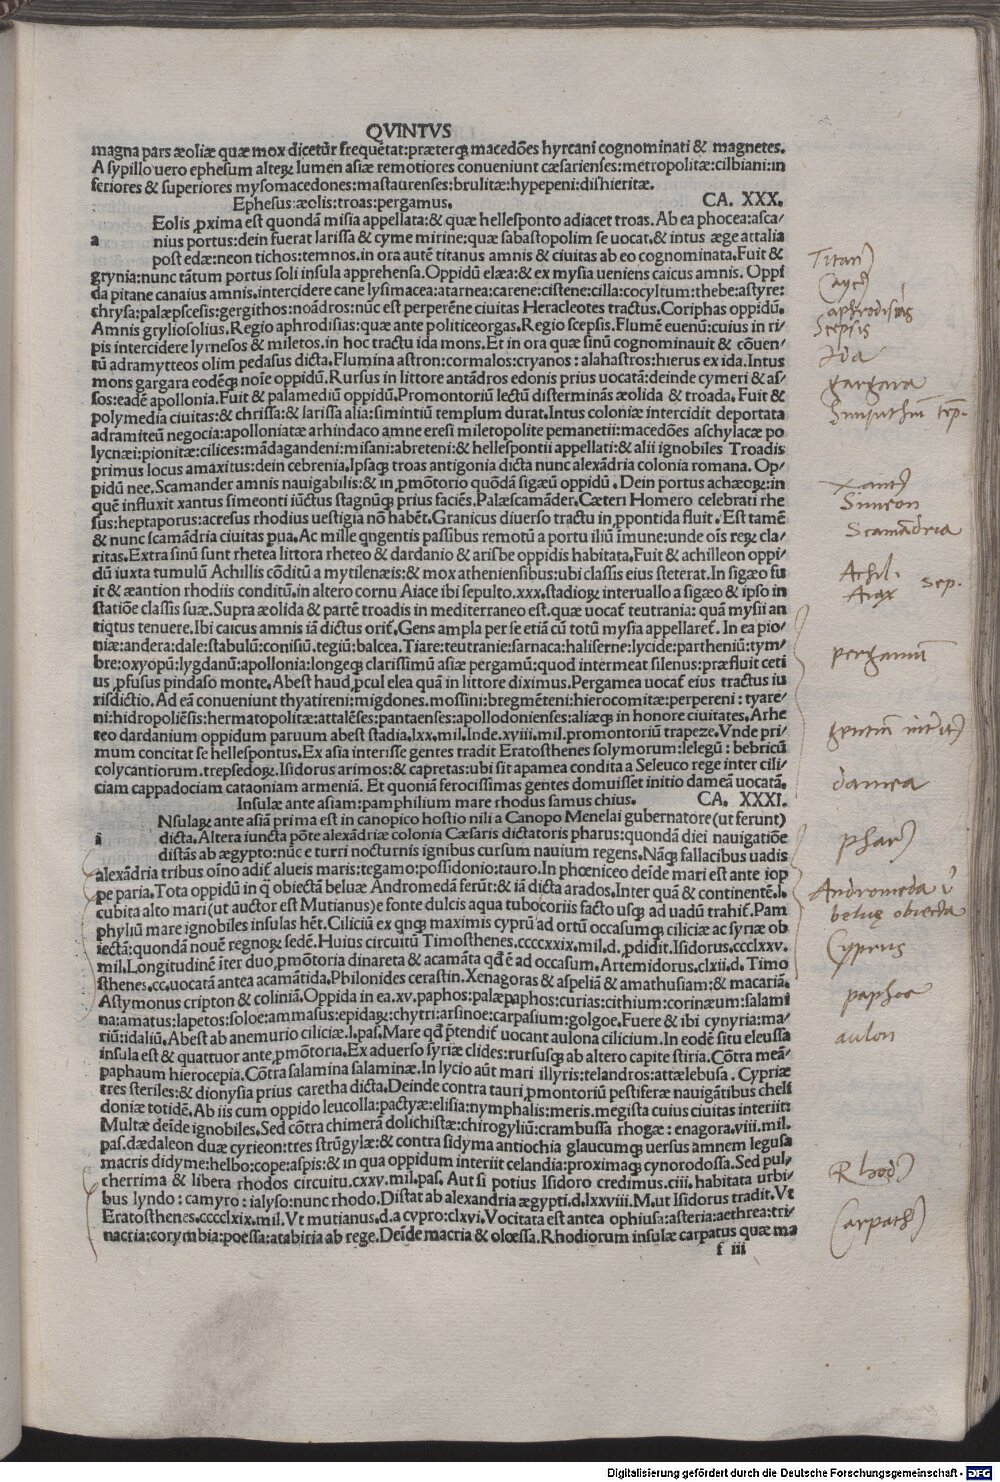 QVINTVS
magna pars æoliæ quæ mox dicetur̃ frequẽtat:præterqꝫ macedões hyrcani cognominati & magnetes.
A sypillo uero ephesum alterꝝ lumen asiæ remotiores conueniunt cæsarienses:metropolitæ:cilbiani:in
feriores & superiores mysomacedones:mastaurenses:brulitæ:hypepeni:dishieritæ.
Ephesus:æolis:troas:pergamus. CA. XXX.
Eolis ꝓxima est quondã misia appellata:& quæ hellesponto adiacet troas. Ab ea phocea:asca/
a nius portus:dein fuerat larissa & cyme mirine:quæ sabastopolim se uocat.& intus æge attalia
post edæ:neon tichos:temnos.in ora autẽ titanus amnis & ciuitas ab eo cognominata.Fuit &
grynia:nunc tãtum portus soli insula apprehensa.Oppidũ elæa:& ex mysia ueniens caicus amnis. Oppi
da pitane canaius amnis.intercidere cane lysimacea:atarnea:carene:cistene:cilla:cocyltum:thebe:astyre:
chrysa:palæpscesis:gergithos:noãdros:nũc est perperẽne ciuitas Heracleotes tractus.Coriphas oppidũ.
Amnis gryliosolius.Regio aphrodisias:quæ ante politiceorgas.Regio scepsis.Flumẽ euenũ:cuius in ri/
pis intercidere lyrnesos & miletos.in hoc tractu ida mons.Et in ora quæ sinũ cognominauit & cõuen/
tũ adramytteos olim pedasus dicta.Flumina astron:cormalos:cryanos : alahastros:hierus ex ida.Intus
mons gargara eodẽqꝫ noĩe oppidũ.Rursus in littore antãdros edonis prius uocatã:deinde cymeri & as/
sos:eadẽ apollonia.Fuit & palamediũ oppidũ.Promontoriũ lectũ disterminãs æolida & troada.Fuit &
polymedia ciuitas:& chrissa:& larissa alia:simintiũ templum durat.Intus coloniæ intercidit deportata
adramiteũ negocia:apolloniatæ arhindaco amne eresi miletopolite pemanetii:macedões aschylacæ po
lycnæi:pionitæ:cilices:mãdagandeni:misani:abreteni:& hellespontii appellati:& alii ignobiles Troadis
primus locus amaxitus:dein cebrenia.Ipsaqꝫ troas antigonia dicta nunc alexãdria colonia romana. Op/
pidũ nee.Scamander amnis nauigabilis:& in ꝓmõtorio quõdã sigæũ oppidũ . Dein portus achæoꝝ:in
quẽ influxit xantus simeonti iũctus stagnũqꝫ prius faciẽs.Palæscamãder.Cæteri Homero celebrati rhe
sus:heptaporus:acresus rhodius uestigia nõ habẽt.Granicus diuerso tractu in ꝓpontida fluit . Est tamẽ
& nunc scamãdria ciuitas ꝑua.Ac mille qngentis passibus remotũ a portu iliũ ĩmune:unde oĩs reꝝ cla/
ritas.Extra sinũ sunt rhetea littora rheteo & dardanio & arisbe oppidis habitata.Fuit & achilleon oppi/
dũ iuxta tumulũ Achillis cõditũ a mytilenæis:& mox atheniensibus:ubi classis eius steterat.In sigæo fu
it & æantion rhodiis conditũ.in altero cornu Aiace ibi sepulto.xxx.stadioꝝ interuallo a sigæo & ipso in
statiõe classis suæ.Supra æolida & partẽ troadis in mediterraneo est.quæ uocat̃ teutrania: quã mysii an
tiqtus tenuere.Ibi caicus amnis iã dictus orit̃.Gens ampla per se etiã cũ totũ mysia appellaret̃. In ea pio/
niæ:andera:dale:stabulũ:conisiũ.tegiũ:balcea.Tiare:teutranie:sarnaca:haliserne:lycide:partheniũ:tym/
bre:oxyopũ:lygdanũ:apollonia:longeqꝫ clarissimũ asiæ pergamũ:quod intermeat silenus:præfluit ceti
us ꝓfusus pindaso monte.Abest haud ꝓcul elea quã in littore diximus.Pergamea uocat̃ eius tractus iu
risdictio. Ad eã conueniunt thyatireni:migdones.mossini:bregmẽteni:hierocomitæ:perpereni : tyare/
ni:hidropoliẽsis:hermatopolitæ:attalẽses:pantaenses:apollodonienses:aliæqꝫ in honore ciuitates.Arhe
teo dardanium oppidum paruum abest stadia.lxx.mil.Inde.xviii.mil.promontoriũ trapeze.Vnde pri/
mum concitat se hellespontus.Ex asia interisse gentes tradit Eratosthenes solymorum:lelegũ : bebricũ
colycantiorum.trepsedoꝝ.Isidorus arimos:& capretas:ubi sit apamea condita a Seleuco rege inter cili/
ciam cappadociam cataoniam armeniã. Et quoniã ferocissimas gentes domuisset initio dameã uocatã.
Insulæ ante asiam:pamphilium mare rhodus samus chius. CA. XXXI.
Nsulaꝝ ante asiã prima est in canopico hostio nili a Canopo Menelai gubernatore(ut ferunt)
i dicta.Altera iuncta põte alexãdriæ colonia Cæsaris dictatoris pharus:quondã diei nauigatiõe
distãs ab ægypto:nũc e turri nocturnis ignibus cursum nauium regens.Nãqꝫ fallacibus uadis
alexãdria tribus oĩno adit̃ alueis maris:tegamo:possidonio:tauro.In phœniceo deĩde mari est ante iop
pe paria.Tota oppidũ in q̃ obiectã beluæ Andromedã ferũt:& iã dicta arados.Inter quã & continentẽ.l.
cubita alto mari(ut auctor est Mutianus)e fonte dulcis aqua tubocoriis facto usqꝫ ad uadũ trahit̃.Pam
phyliũ mare ignobiles insulas hẽt.Ciliciũ ex qnqꝫ maximis cyprũ ad ortũ occasumqꝫ ciliciæ ac syriæ ob
iectã:quondã nouẽ regnoꝝ sedẽ.Huius circuitũ Timosthenes.ccccxxix.mil.d.ꝓdidit.Isidorus.ccclxxv.
mil.Longitudinẽ ĩter duo ꝓmõtoria dinareta & acamãta qd̃ ẽ ad occasum.Artemidorus.clxii.d. Timo
sthenes.cc.uocatã antea acamãtida.Philonides cerastin.Xenagoras & aspeliã & amathusiam:& macariã.
Astymonus cripton & coliniã.Oppida in ea.xv.paphos:palæpaphos:curias:cithium:corinæum:salami
na:amatus:lapetos:soloe:ammasus:epidaꝝ:chytri:arsinoe:carpasium:golgoe.Fuere & ibi cynyria:ma/
riũ:idaliũ.Abest ab anemurio ciliciæ.l.pas̃.Mare qd̃ p̃tendit̃ uocant aulona cilicium.In eodẽ situ eleussa
insula est & quattuor ante ꝓmõtoria.Ex aduerso syriæ clides:rursusqꝫ ab altero capite stiria.Cõtra meã/
paphaum hierocepia.Cõtra salamina salaminæ.In lycio aũt mari illyris:telandros:attælebusa . Cypriæ
tres steriles:& dionysia prius caretha dicta.Deinde contra tauri ꝓmontoriũ pestiferæ nauigãtibus cheli
doniæ totidẽ.Ab iis cum oppido leucolla:pactyæ:elisia:nymphalis:meris.megista cuius ciuitas interiit:
Multæ deĩde ignobiles.Sed cõtra chimerã dolichistæ:chirogyliũ:crambussa rhogæ : enagora.viii.mil.
pas̃.dædaleon duæ cyrieon:tres strũgylæ:& contra sidyma antiochia glaucumqꝫ uersus amnem legusa
macris didyme:helbo:cope:aspis:& in qua oppidum interiit celandia:proximaqꝫ cynorodossa. Sed pul/
cherrima & libera rhodos circuitu.cxxv.mil.pas̃. Aut si potius Isidoro credimus.ciii.habitata urbi/
bus lyndo : camyro : ialyso:nunc rhodo.Distat ab alexandria ægypti.d.lxxviii.M.ut Isidorus tradit.Vt
Eratosthenes.cccclxix.mil.Vt mutianus.d.a cypro:clxvi.Vocitata est antea ophiusa:asteria:aethrea:tri/
nacria:corymbia:poessa:atabiria ab rege.Deĩde macria & oloessa.Rhodiorum insulæ carpatus quæ ma
f iii
Titan9
Cayc9
aphrodisias
Scepsis
Ida
gargara
Sminthiũ tẽp.
Xant9
Simeon
Scamãdria
Achil.
Aiax sep.
pergamũ
gentiũ interit9
damea
phar9
Andromeda ĩ
beluę obiecta
Cyprus
paphos
aulon
Rhod9
Carpath9
Digitalisierung gefördert durch die Deutsche Forschungsgemeinschaft - DFG